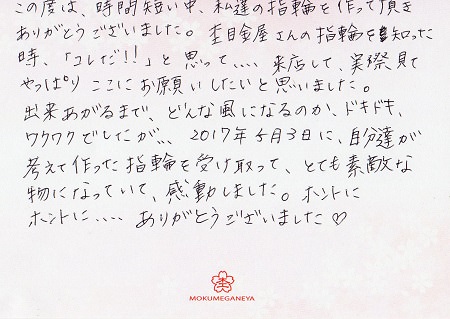 この度は、時間短い中、私達の指輪を作って頂き
ありがとうございました。杢目金屋さんの指輪を知った
時、「コレだ!!」と思って、、、、来店して、実際見て
やっぱり ここにお願いしたいと思いました。
出来あがるまで、どんな風になるのか、ドキドキ、
ワクワクでしたが、、、2017年5月3日に、自分達が
考えて作った指輪を受け取って、とても素敵な
物になっていて、感動しました。ホントに
ホントに、、、、ありがとうございました♡
MOKUMEGANEYA